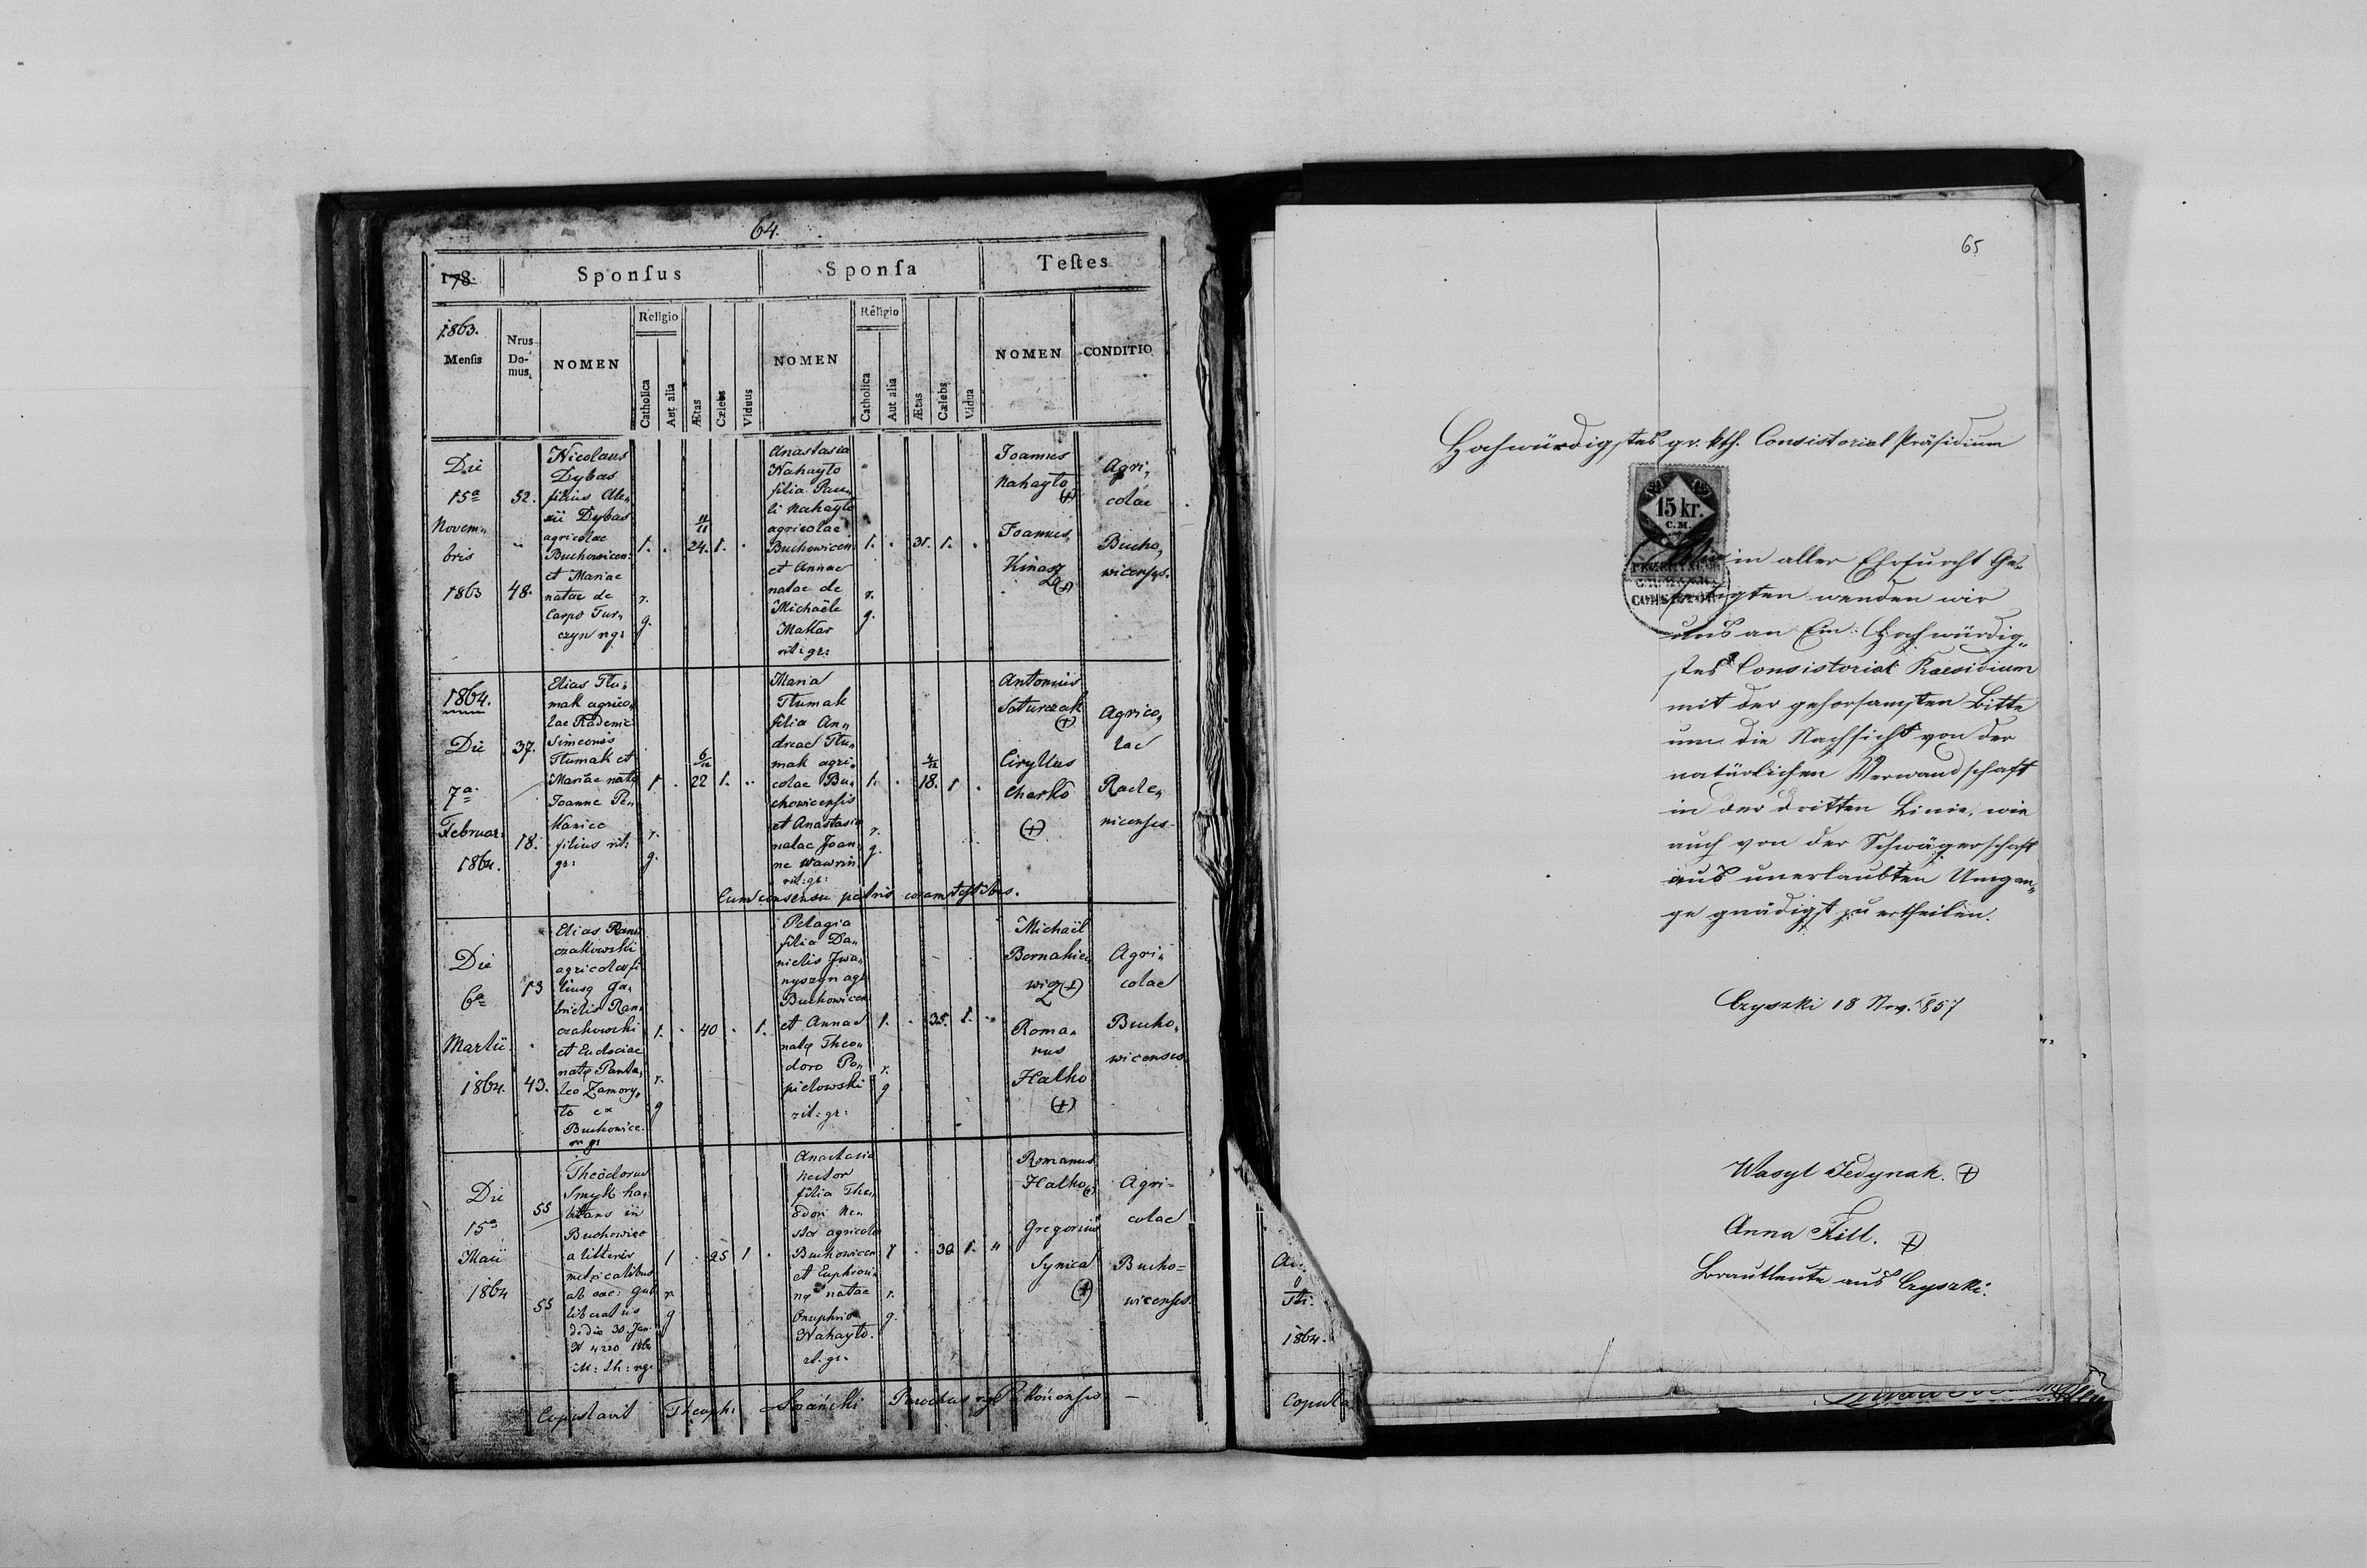 64.
178
Sponſus
Sponſa
Teſtes
1863.
Menſis
Nrus
Do-
mus
NOMEN
Religio
Catholica
Aut alia
Ætas
Cælebs
Viduus
NOMEN
Religio
Catholica
Aut alia
Ætas
Cælebs
Vidua
NOMEN
CONDITIO
Die
15ª
Novem„
bris
1863
52.
„
48.
Nicolaus
Dybas
filius Ale„
xii Dybas
agricolae
Buchowicen:
et Mariae
natae de
Carpo Tur„
czyn rg:
1.
r.
g.
11/11
24.
1.
Anastasia
Nahayło
filia Pau„
li Nahayło
agricolae
Buchowicen
et Annae
natae de
Michaële
Makar
rit: gr:
1.
r.
g.
31.
1.
Joannes
Nahayło
(+)
Joannes
Kinasz
(+)
Agri„
colae
Bucho„
wicenses.
1864.
Die
7ª
Februar:
1864.
37.
18.
Elias Tłu„
mak agrico„
lae Radenic
Simeonis
Tłumak et
Mariae natę
Joanne Pe„
filius rit:
gr:
1
r.
g.
6/12
22
1.
Maria
Tłumak
filia An„
dreae Tłu„
mak agri„
colae Bu„
chowicensis
et Anastasia
natae Joan„
ne Wawrin
rit: gr:
1.
r.
g.
4/12
18.
1
Antonius
(+)
Cirÿllus
Charko
(+)
Agrico„
lae
Rade„
nicenses
Cum consensu patris coram testibus.
Die
6ª
Martii
1864.
13
43.
Elias Ran„
czakowski
agricola fi
liusq Ga„
brielis Ran„
czakowski
et Eudociae
natę Panta„
leo Zamory„
to ex
Buchowice
r. g:
1.
r.
g
40
1.
Pelagia
filia Da„
nielis Iwa„
nyszyn agr
Buchowicen
et Annae
natę Theo„
doro Po„
pielowski
rit: gr:
1.
r.
g
35.
1.
Michaël
(+)
Roma„
nus
Hałko
(+)
Agri„
colae
Bucho„
wicenses
Die
15ª
Maii
1864
55
55
Theodorus
Smyk ha„
bitans in
Buchowice
a litteris
metricalibus
liberatus
de die 30. Jan.
1
r
g
25
1
Anastasia
Nestor
filia The„
odori Ne„
stor agricolae
Buchowicen
et Euphrosi„
nę natae
Onuphrio
Nahayło.
rt. gr.
1
r.
g.
30
1.
„
Romanus
Hałko (+)
Gregorius
Synica
(+)
Agri=
colae
Bucho=
wicenses.
Copulavit
Theoph:
Parochus
1864.
Copula
65
Hochwürdigstes gr. kth. Consistorial Präsidium
15 kr.
C.M.
CONSISTOR
in aller Ehrfurcht Ge„
fertigten wenden wir
uns an Ein: Hochwürdig„
stes Consistorial Praesidium
mit der gehorsamsten Bitte
um die Nachsicht von der
natürlichen Verwandschaft
in der dritten Linie, wie
auch von der Schwägerschaft
aus unerlaubten Umgan„
ge gnädigst zu ertheilen.
Czyszki 18 Nov. 1857
Wasyl Jedynak. (+)
Anna Kill. (+)
Brautleute aus Czyszki.